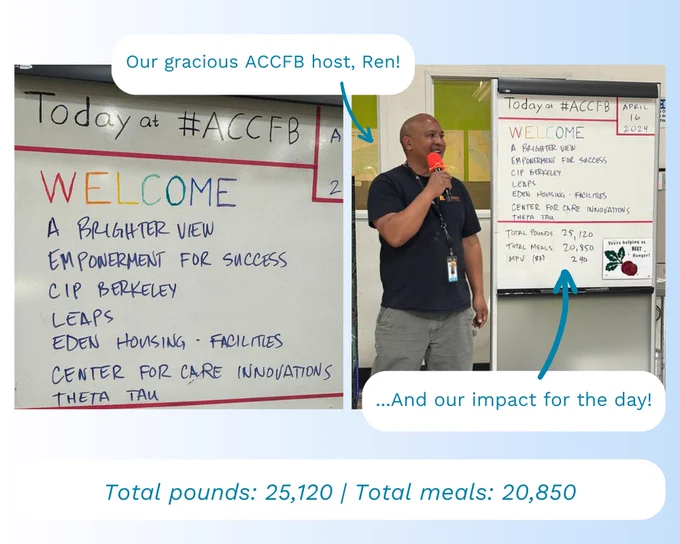 Our gracious ACCFB host, Ren!
Today at #ACCFB
WELCOME
A BRIGHTER VIEW
EMPOWERMENT FOR SUCCESS
CIP BERKELEY
LEAPS
EDEN HOUSING - FACILITIES
CENTER FOR CARE INNOVATIONS
THETA TAU
A
2
Today at #ACCFB
APRIL
16
2024
WELCOME
A BRIGHTER VIEW
EMPOWERMENT FOR SUCCESS
CIP BERKELEY
LEAPS
EDEN HOUSING - FACILITIES
CENTER FOR CARE INNOVATIONS
THETA TAU
TOTAL POUNDS: 25,120
TOTAL MEALS: 20,850
You're helping us
BEET
Hunger!
...And our impact for the day!
Total pounds: 25,120 | Total meals: 20,850